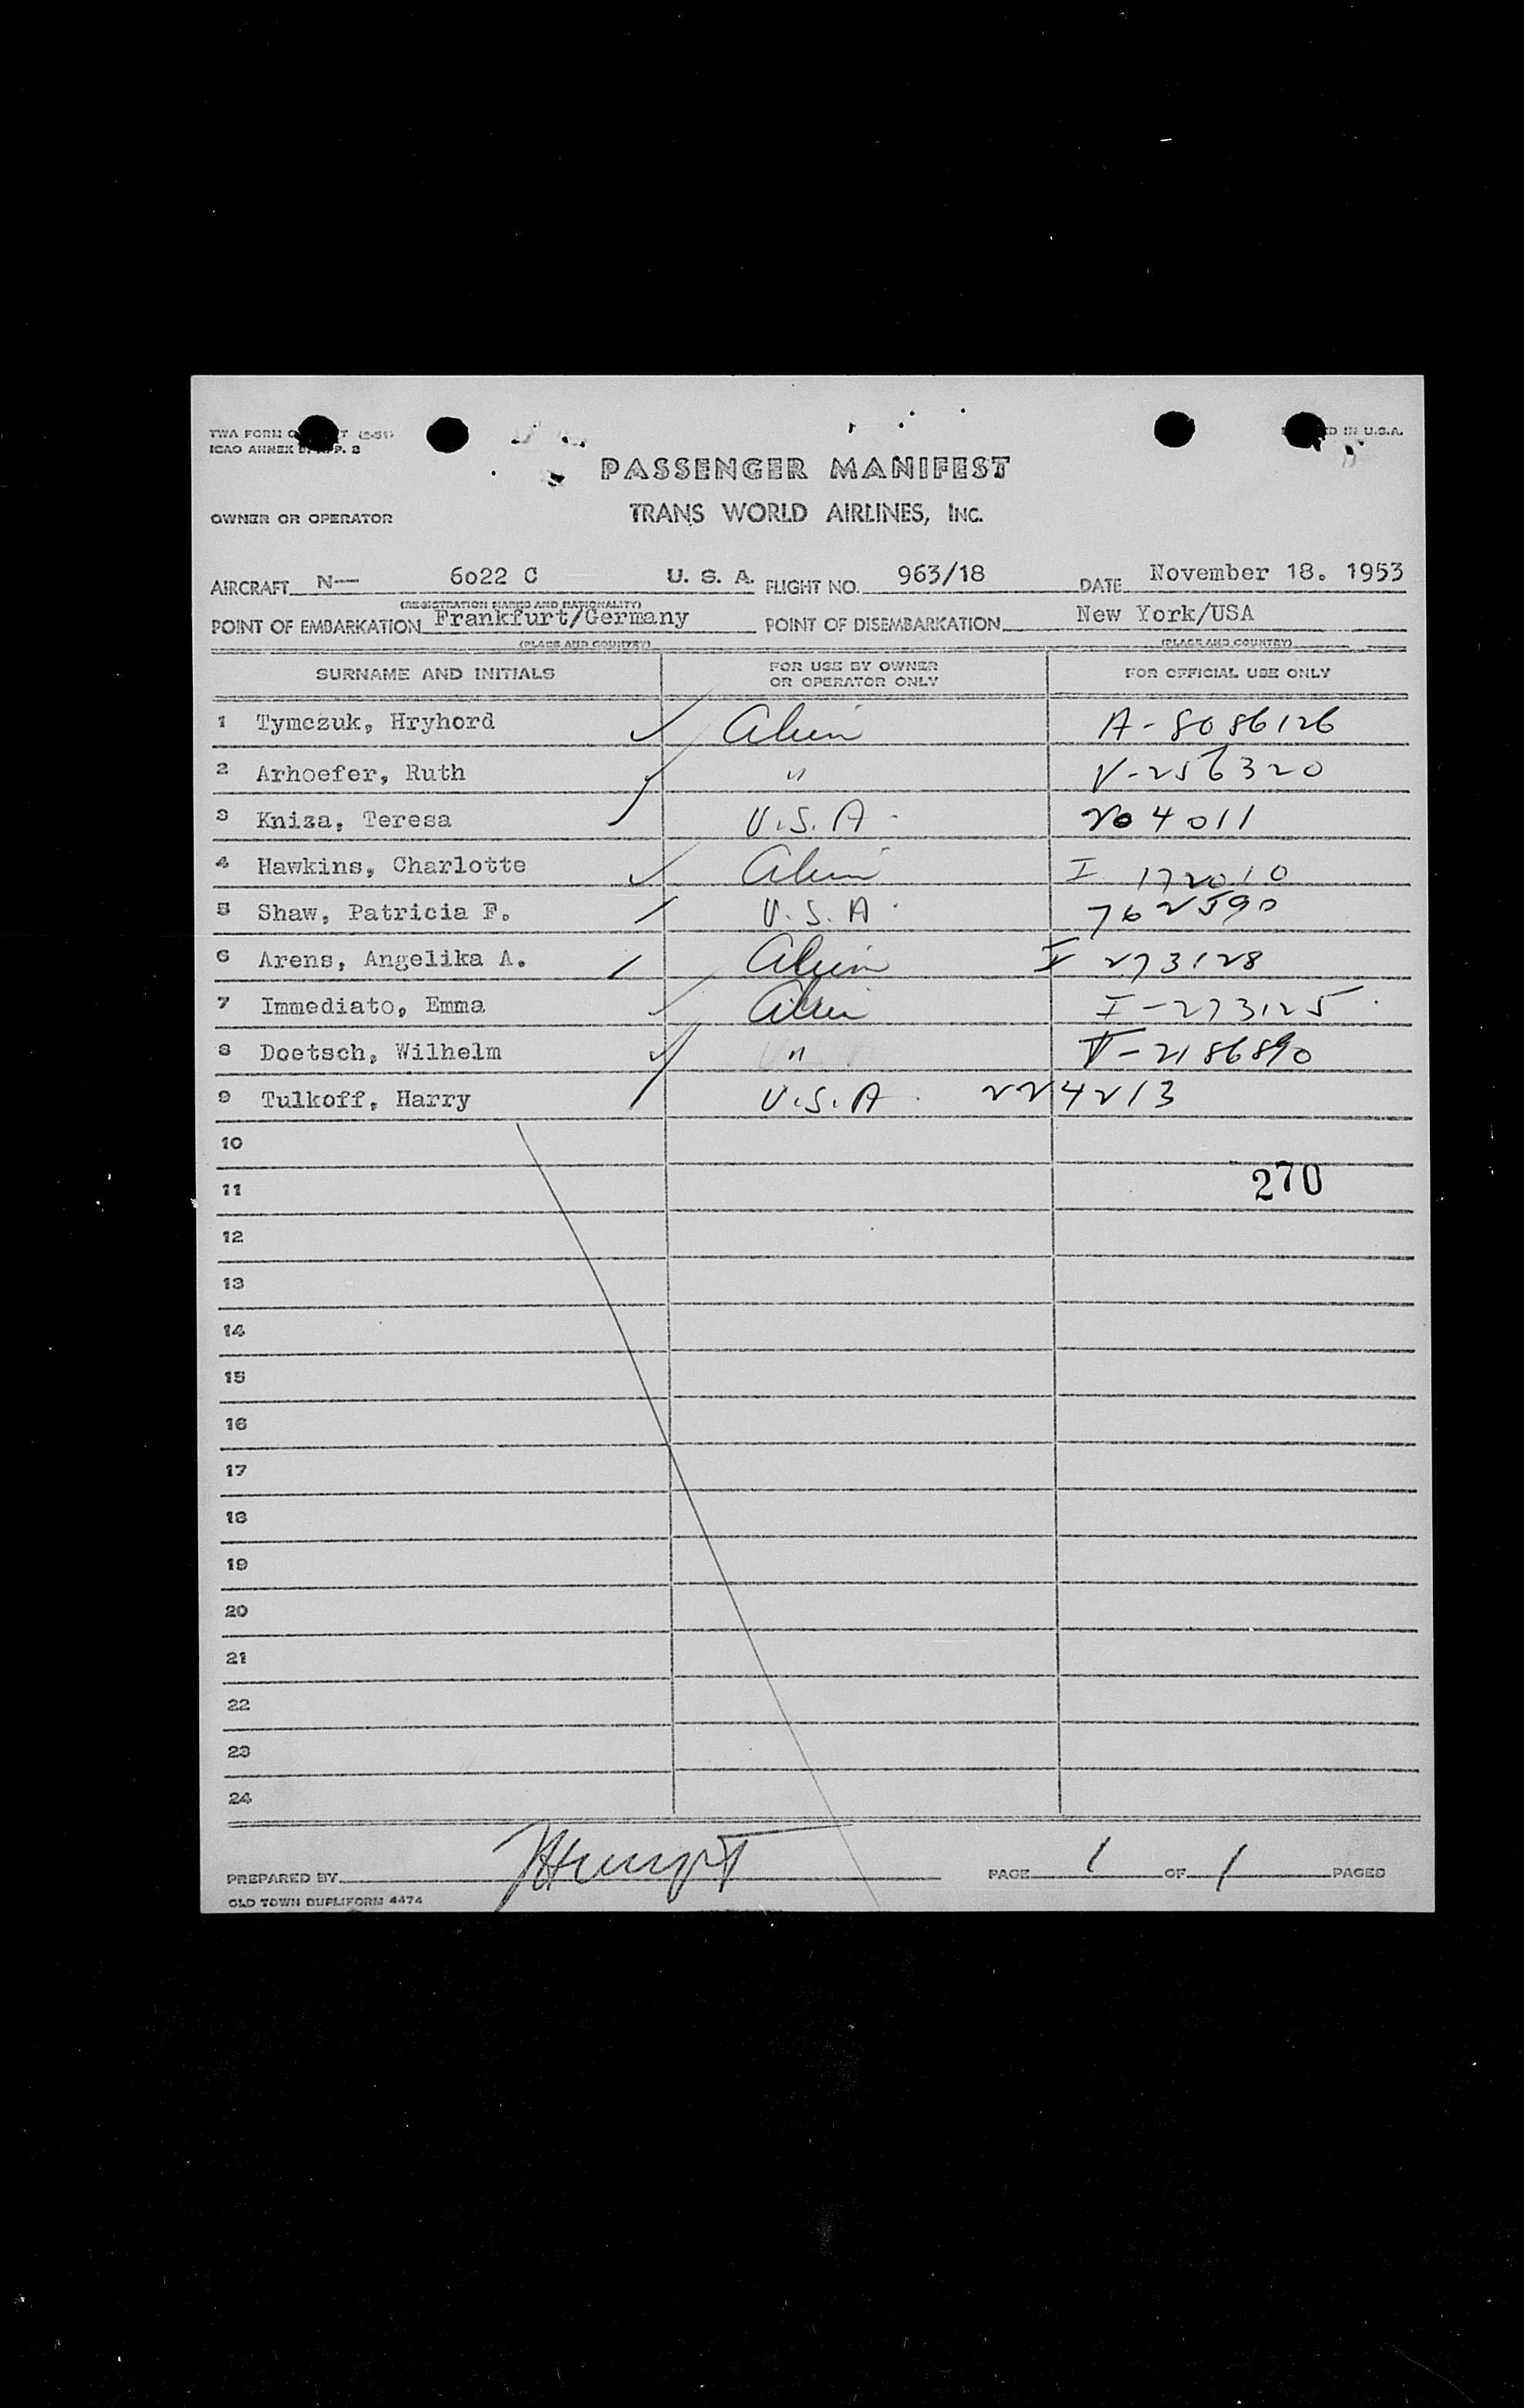 TWA FORM T (2-51)
ICAO ANNEX 9, APP. 3
D IN U.S.A.
PASSENGER MANIFEST
OWNER OR OPERATOR TRANS WORLD AIRLINES, INC.
AIRCRAFT N— 6022 C U. S. A. FLIGHT NO. 963/18 DATE November 18. 1953
(REGISTRATION MARKS AND NATIONALITY)
POINT OF EMBARKATION Frankfurt/Germany POINT OF DISEMBARKATION New York/USA
(PLACE AND COUNTRY) (PLACE AND COUNTRY)
SURNAME AND INITIALS FOR USE BY OWNER OR OPERATOR ONLY FOR OFFICIAL USE ONLY
1 Tymczuk, Hryhord ✓ Alien A-8086126
2 Arhoefer, Ruth ✓ " V-256320
3 Kniza, Teresa / U.S.A. 204011
4 Hawkins, Charlotte ✓ Alien I 172010
5 Shaw, Patricia F. / U.S.A. 762590
6 Arens, Angelika A. / Alien I 273128
7 Immediato, Emma ✓ Alien I-273125
8 Doetsch, Wilhelm ✓ " V-2186890
9 Tulkoff, Harry / U.S.A. 224213
10
11 270
12
13
14
15
16
17
18
19
20
21
22
23
24
PREPARED BY PAGE 1 OF 1 PAGES
OLD TOWN DUPLIFORM 4474